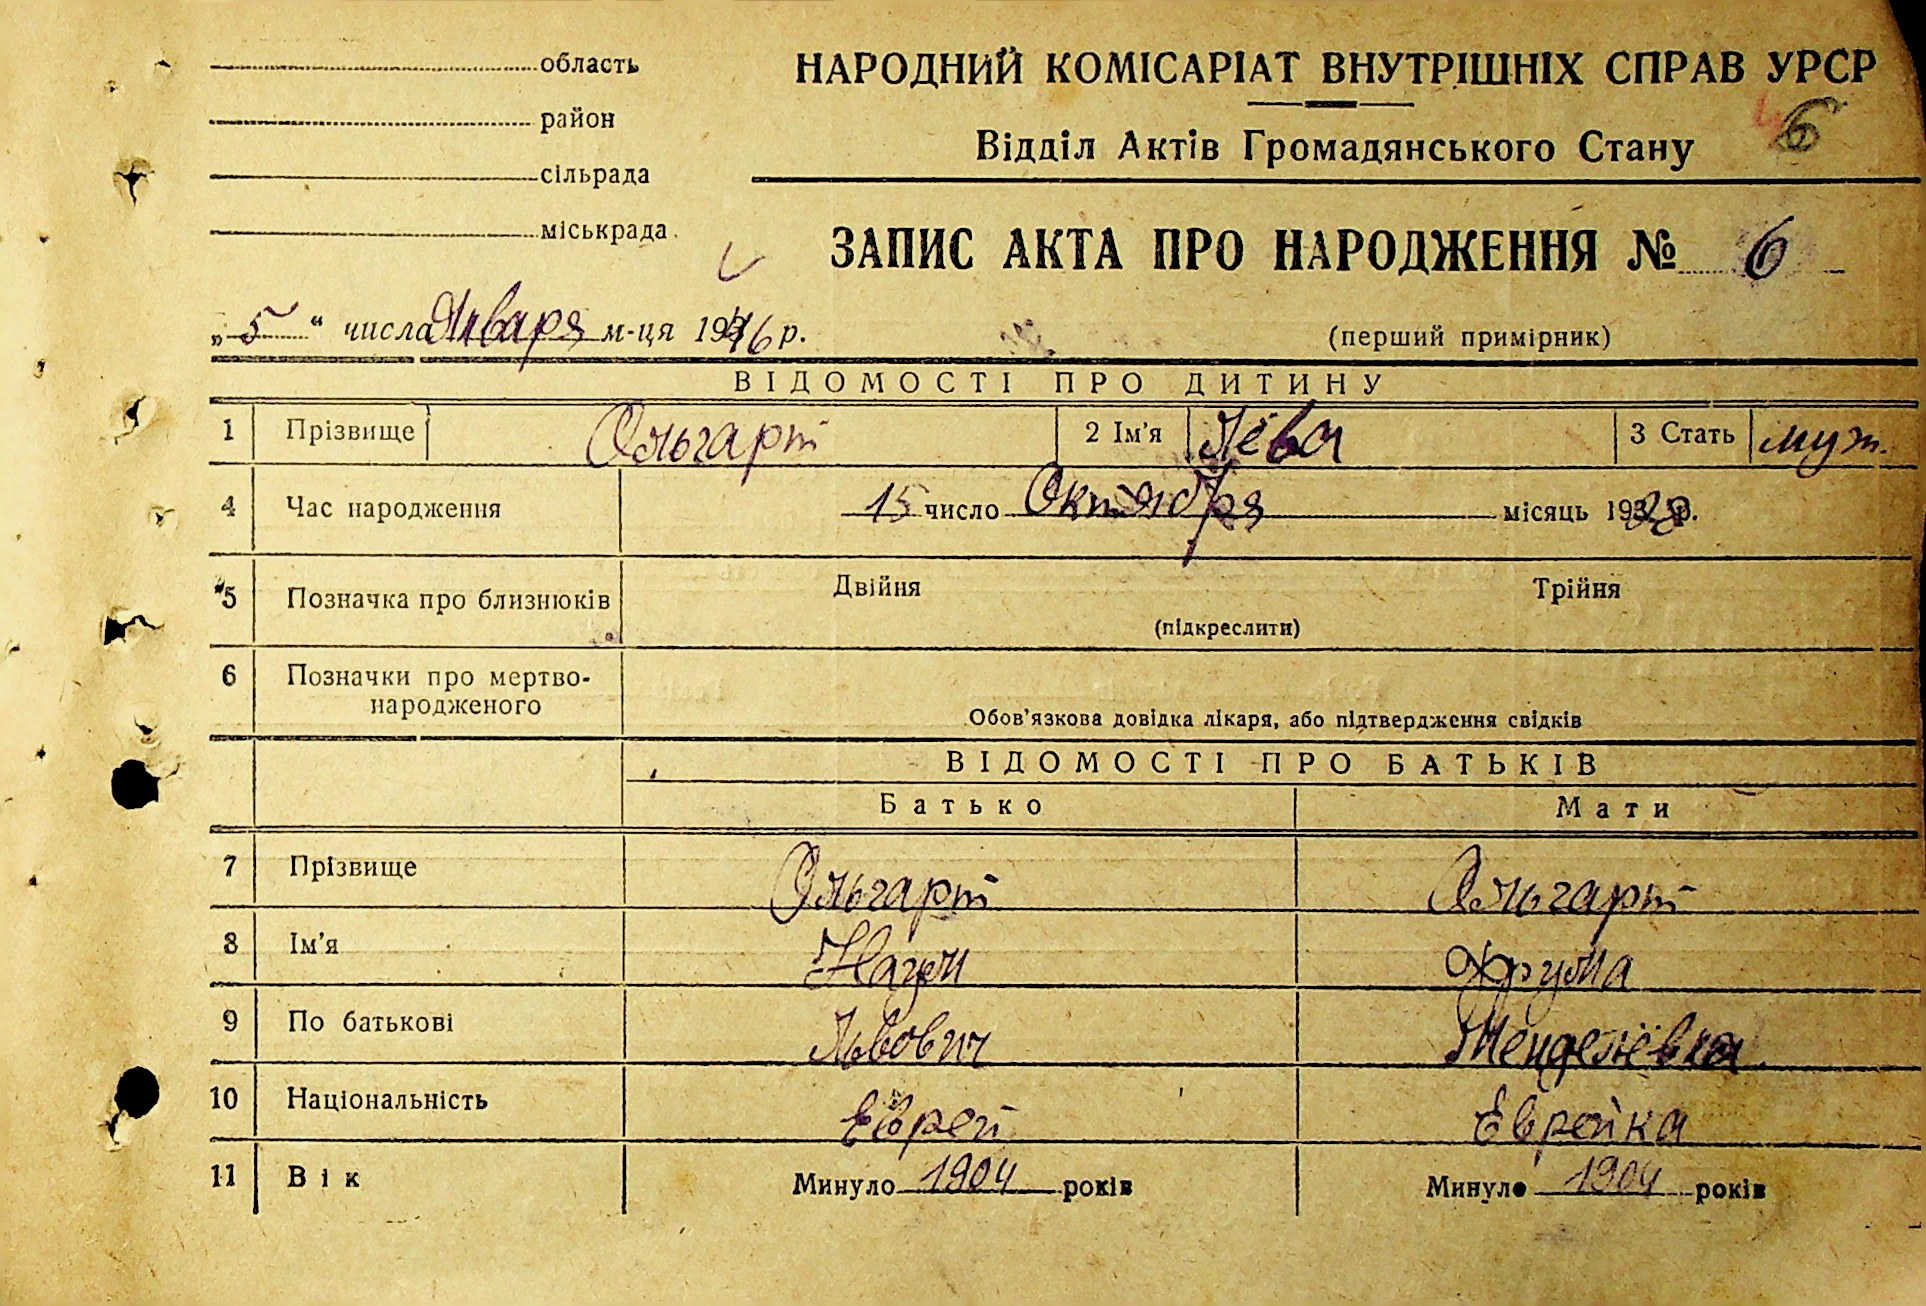 область
район
сільрада
міськрада
НАРОДНИЙ КОМІСАРІАТ ВНУТРІШНІХ СПРАВ УРСР
6
Відділ Актів Громадянського Стану
ЗАПИС АКТА ПРО НАРОДЖЕННЯ № 6
„5“ числа Января м-ця 1946 р.
(перший примірник)
ВІДОМОСТІ ПРО ДИТИНУ
1 Прізвище Ольгарт 2 Ім'я Лёва 3 Стать муж.
4 Час народження 15 число Октября місяць 1938 р.
5 Позначка про близнюків Двійня Трійня
(підкреслити)
6 Позначки про мертво-
народженого
Обов'язкова довідка лікаря, або підтвердження свідків
ВІДОМОСТІ ПРО БАТЬКІВ
Батько Мати
7 Прізвище Ольгарт Ольгарт
8 Ім'я Наум Фрума
9 По батькові Львович Менделёвна
10 Національність Еврей Еврейка
11 Вік Минуло 1904 років Минуло 1904 років